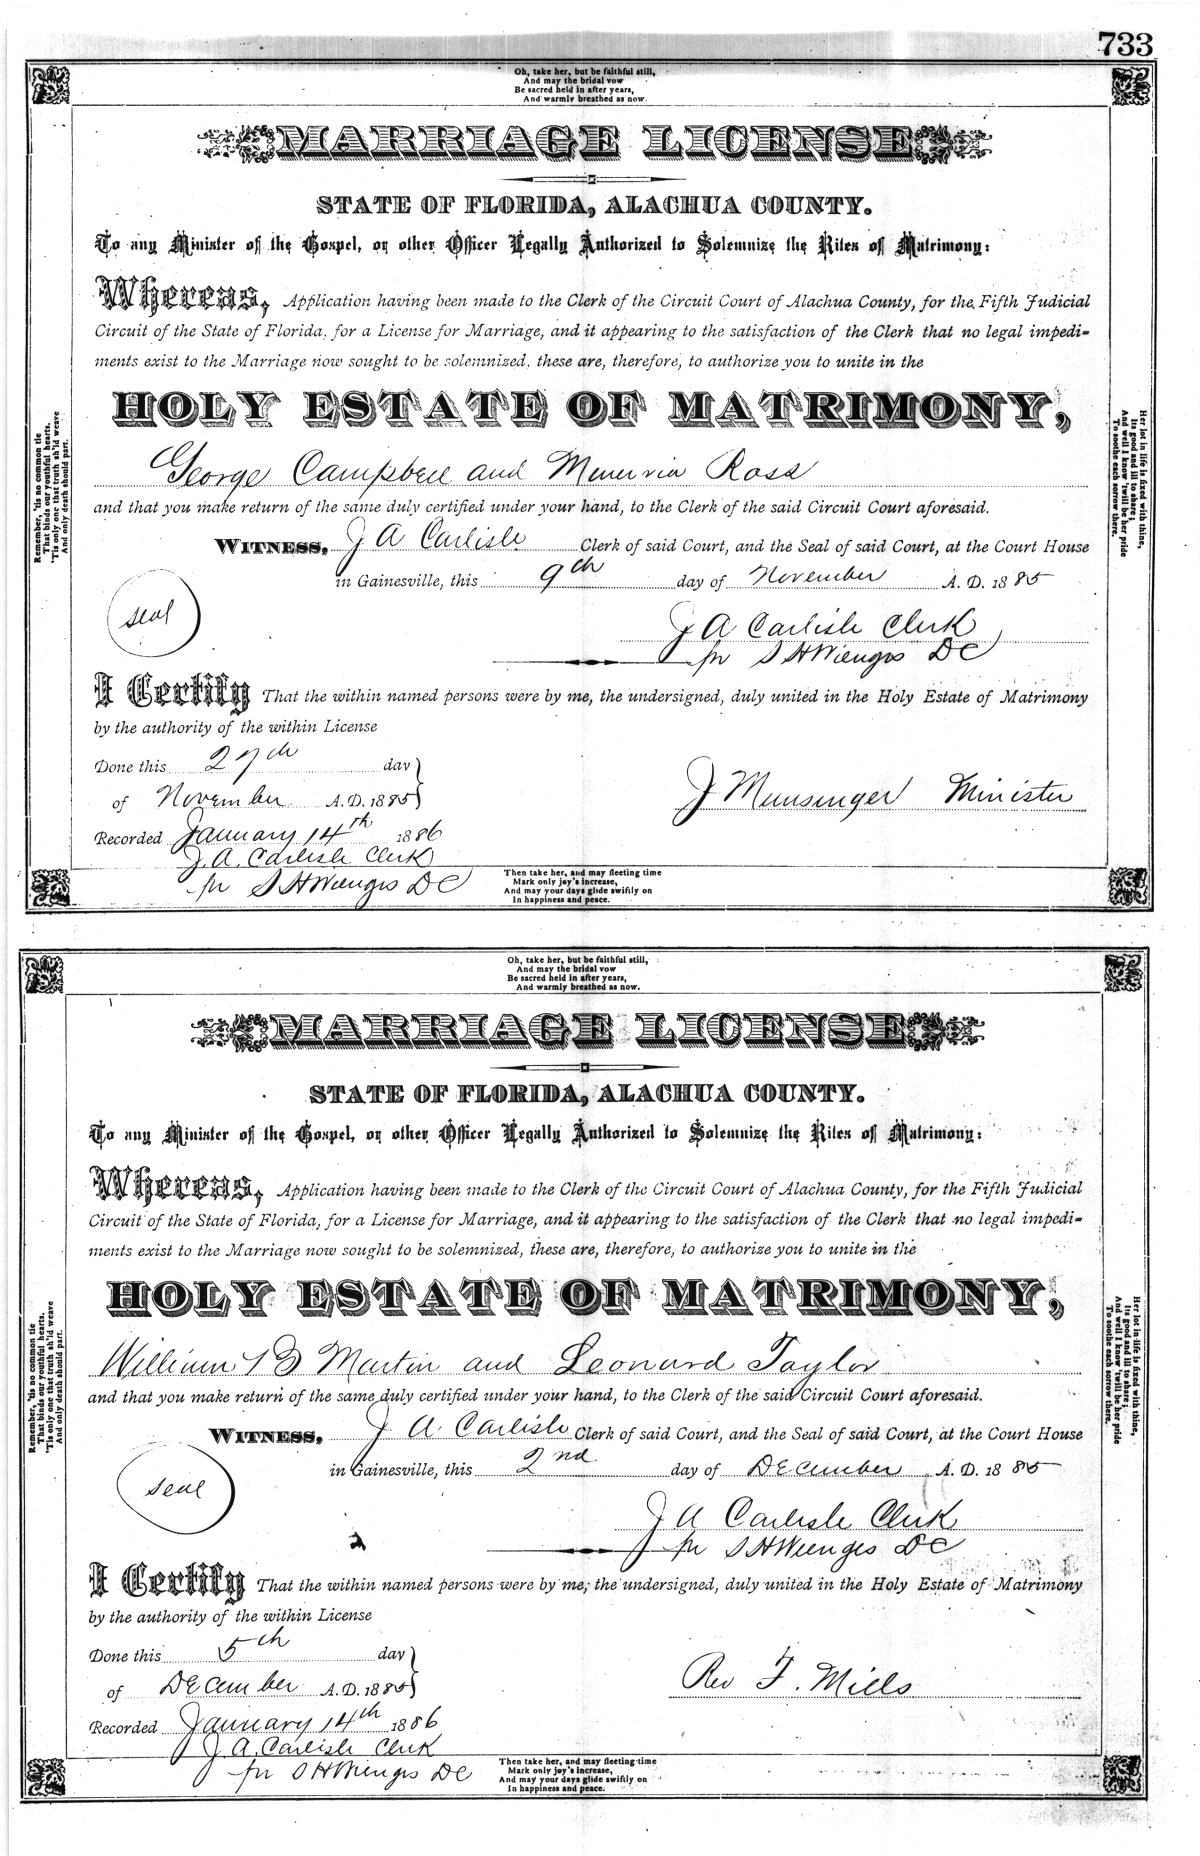 733
Oh, take her, but be faithful still,
And may the bridal vow
Be sacred held in after years,
And warmly breathed as now.
MARRIAGE LICENSE
STATE OF FLORIDA, ALACHUA COUNTY.
To any Minister of the Gospel, or other Officer Legally Authorized to Solemnize the Rites of Matrimony:
Whereas, Application having been made to the Clerk of the Circuit Court of Alachua County, for the Fifth Judicial
Circuit of the State of Florida, for a License for Marriage, and it appearing to the satisfaction of the Clerk that no legal impedi-
ments exist to the Marriage now sought to be solemnized, these are, therefore, to authorize you to unite in the
HOLY ESTATE OF MATRIMONY,
George Campbell and Minervia Ross
and that you make return of the same duly certified under your hand, to the Clerk of the said Circuit Court aforesaid.
WITNESS, J A Carlisle Clerk of said Court, and the Seal of said Court, at the Court House
in Gainesville, this 9th day of November A. D. 1885
seal
J A Carlisle Clerk
pr S H Wienges DC
I Certify That the within named persons were by me, the undersigned, duly united in the Holy Estate of Matrimony
by the authority of the within License
Done this 27th day
of November A.D. 1885
J Munsinger Minister
Recorded January 14th 1886
J. A. Carlisle Clerk
pr S H Wienges DC
Remember, 'tis no common tie
That binds our youthful hearts.
'Tis only one that truth sh'ld weave
And only death should part.
Her lot in life is fixed with thine,
Its good and ill to share;
And well I know 'twill be her pride
To soothe each sorrow there.
Then take her, and may fleeting time
Mark only joy's increase,
And may your days glide swiftly on
In happiness and peace.
Oh, take her, but be faithful still,
And may the bridal vow
Be sacred held in after years,
And warmly breathed as now.
MARRIAGE LICENSE
STATE OF FLORIDA, ALACHUA COUNTY.
To any Minister of the Gospel, or other Officer Legally Authorized to Solemnize the Rites of Matrimony:
Whereas, Application having been made to the Clerk of the Circuit Court of Alachua County, for the Fifth Judicial
Circuit of the State of Florida, for a License for Marriage, and it appearing to the satisfaction of the Clerk that no legal impedi-
ments exist to the Marriage now sought to be solemnized, these are, therefore, to authorize you to unite in the
HOLY ESTATE OF MATRIMONY,
William B Martin and Leonard Taylor
and that you make return of the same duly certified under your hand, to the Clerk of the said Circuit Court aforesaid.
WITNESS, J A Carlisle Clerk of said Court, and the Seal of said Court, at the Court House
in Gainesville, this 2nd day of December A. D. 1885
seal
J A Carlisle Clerk
pr S H Wienges DC
I Certify That the within named persons were by me, the undersigned, duly united in the Holy Estate of Matrimony
by the authority of the within License
Done this 5th day
of December A.D. 1885
Rev F. Mills
Recorded January 14th 1886
J A. Carlisle Clerk
pr S H Wienges DC
Remember, 'tis no common tie
That binds our youthful hearts.
'Tis only one that truth sh'ld weave
And only death should part.
Her lot in life is fixed with thine,
Its good and ill to share;
And well I know 'twill be her pride
To soothe each sorrow there.
Then take her, and may fleeting time
Mark only joy's increase,
And may your days glide swiftly on
In happiness and peace.